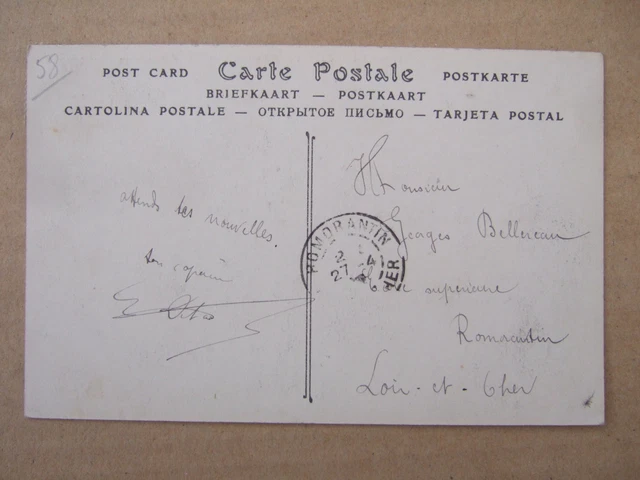 58
POST CARD Carte Postale POSTKARTE
BRIEFKAART — POSTKAART
CARTOLINA POSTALE — ОТКРЫТОЕ ПИСЬМО — TARJETA POSTAL
attends tes nouvelles.
ton copain
Monsieur
Georges Bellereau
supérieure
Romorantin
Loir-et-Cher
ROMORANTIN
27
CHER